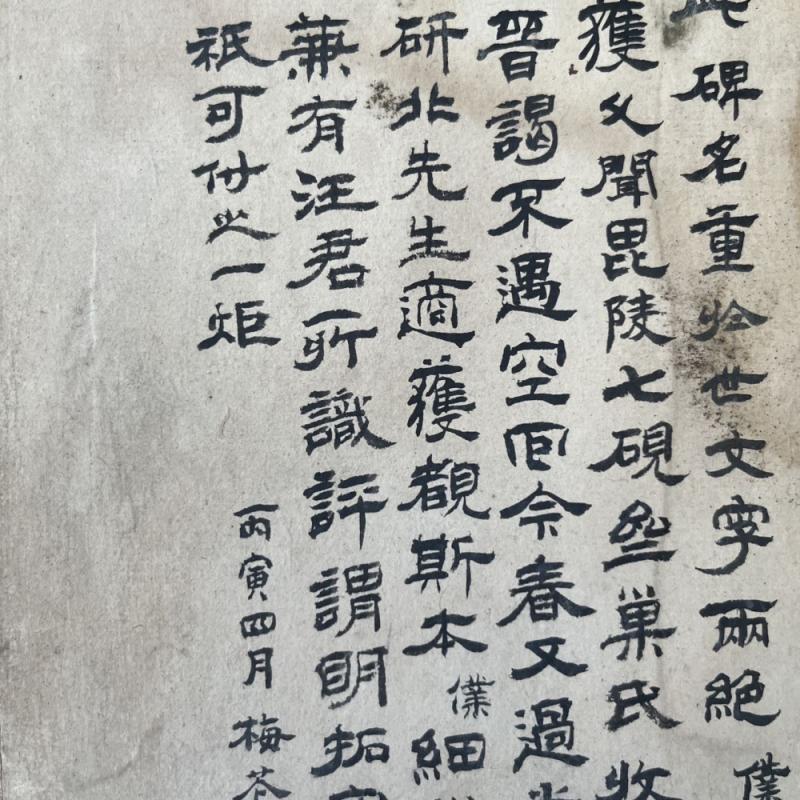 碑名重於世文字兩絶僕
獲又聞毘陵七硯巢氏收
晉謁不遇空回今春又過
研北先生適獲覩斯本僕細
兼有汪君所識評謂明拓
祇可付之一炬
丙寅四月梅